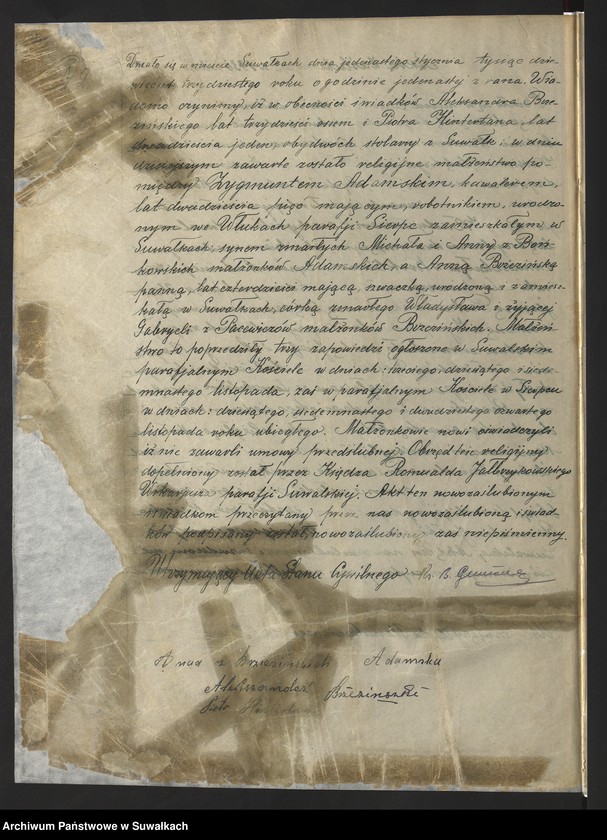 Działo się w mieście Suwałkach dnia jedenastego stycznia tysiąc dzie-
więćset trzydziestego roku o godzinie jedenastej z rana. Wia-
domo czynimy, iż w obecności świadków Aleksandra Brze-
zińskiego lat trzydzieści osiem i Piotra lat
jeden, obydwóch stolarzy z Suwałk: w dniu
dzisiejszym zawarte zostało religijne małżeństwo po-
między Zygmuntem Adamskim, kawalerem,
lat dwadzieścia pięć mającym, robotnikiem, urodzo-
nym we Włukach parafji Sierpc zamieszkałym w
Suwałkach, synem zmarłych Michała i Anny z Boń-
kowskich małżonków Adamskich, a Anną Brzezińską
panną, lat czterdzieści mającą, szwaczką, urodzoną i zamiesz-
kałą w Suwałkach, córką zmarłego Władysława i żyjącej
Gabryeli z Pacewiczów małżonków Brzezińskich. Małżeń-
stwo to poprzedziły trzy zapowiedzi ogłoszone w Suwalskim
parafjalnym Kościele w dniach: trzeciego, dziesiątego i siede-
mnastego listopada, zaś w parafjalnym Kościele w Sierpcu
w dniach: dziesiątego, siedemnastego i dwudziestego czwartego
listopada roku ubiegłego. Małżonkowie nowi oświadczyli
iż nie zawarli umowy przedślubnej. Obrzęd ten religijny
dopełniony został przez Księdza Romualda Jałbrzykowskiego
Wikarjusza parafji Suwalskiej. Akt ten nowozaślubionym
i świadkom przeczytany przez nas nowozaślubioną i świad-
ków podpisany został, nowozaślubiony zaś niepiśmienny.
Utrzymujący Akta Stanu Cywilnego Ks. B.
Anna z Brzezińskich Adamska
Aleksander Brzezinski
Piotr
Archiwum Państwowe w Suwałkach